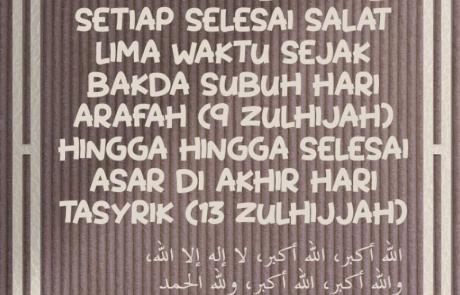 SETIAP SELESAI SALAT
LIMA WAKTU SEJAK
BAKDA SUBUH HARI
ARAFAH (9 ZULHIJAH)
HINGGA HINGGA SELESAI
ASAR DI AKHIR HARI
TASYRIK (13 ZULHIJJAH)
الله أكبر، الله أكبر، لا إله إلا الله،
والله أكبر، الله أكبر، ولله الحمد